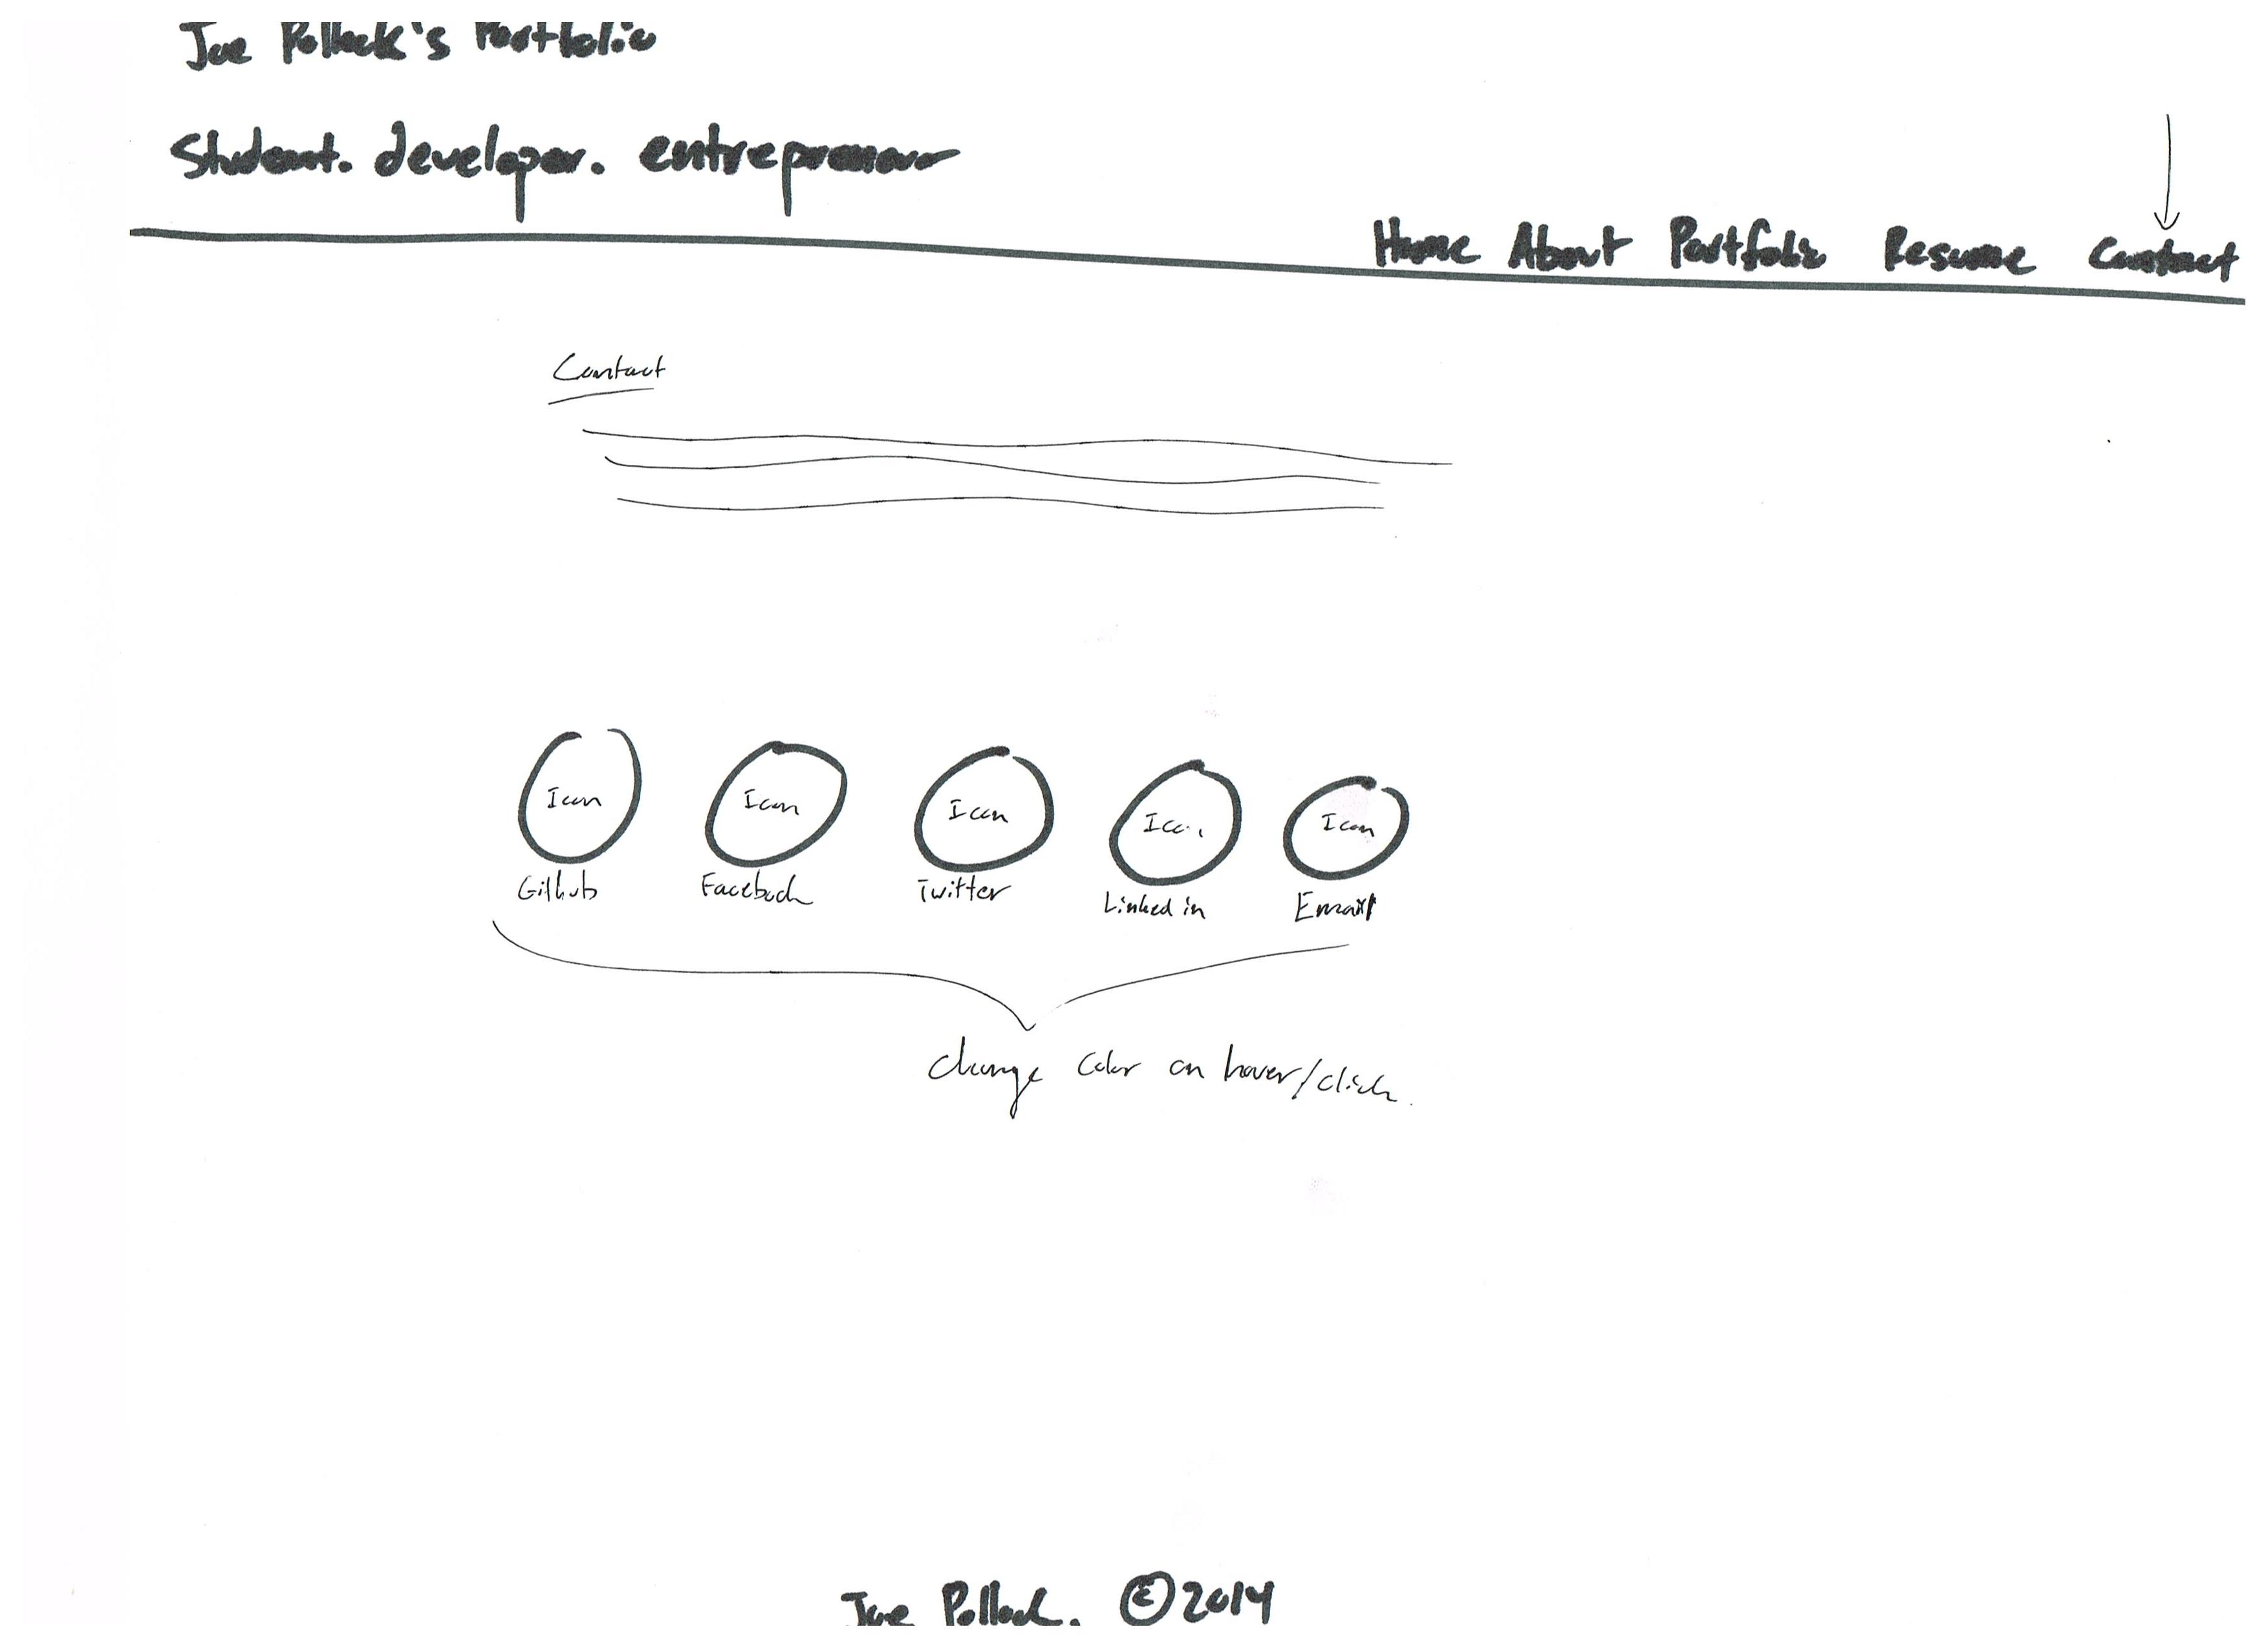 Joe Pollack's Portfolio
Student. developer. entrepreneur
Home About Portfolio Resume Contact
Contact
Icon Icon Icon Icon Icon
Github Facebook Twitter Linkedin Email
change color on hover/click.
Joe Pollack. ©2014